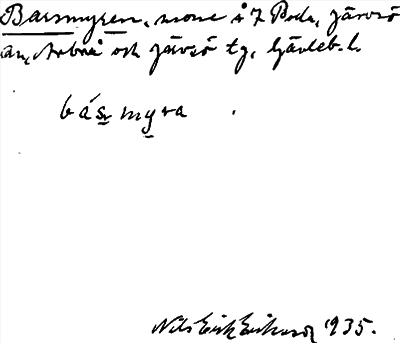 Barsmyren, mosse å 7 Boda, Järvsö
sn, Arbrå och Järvsö tg, Gävleb. l.
básmyra
Nils Erik Eriksson 1935.